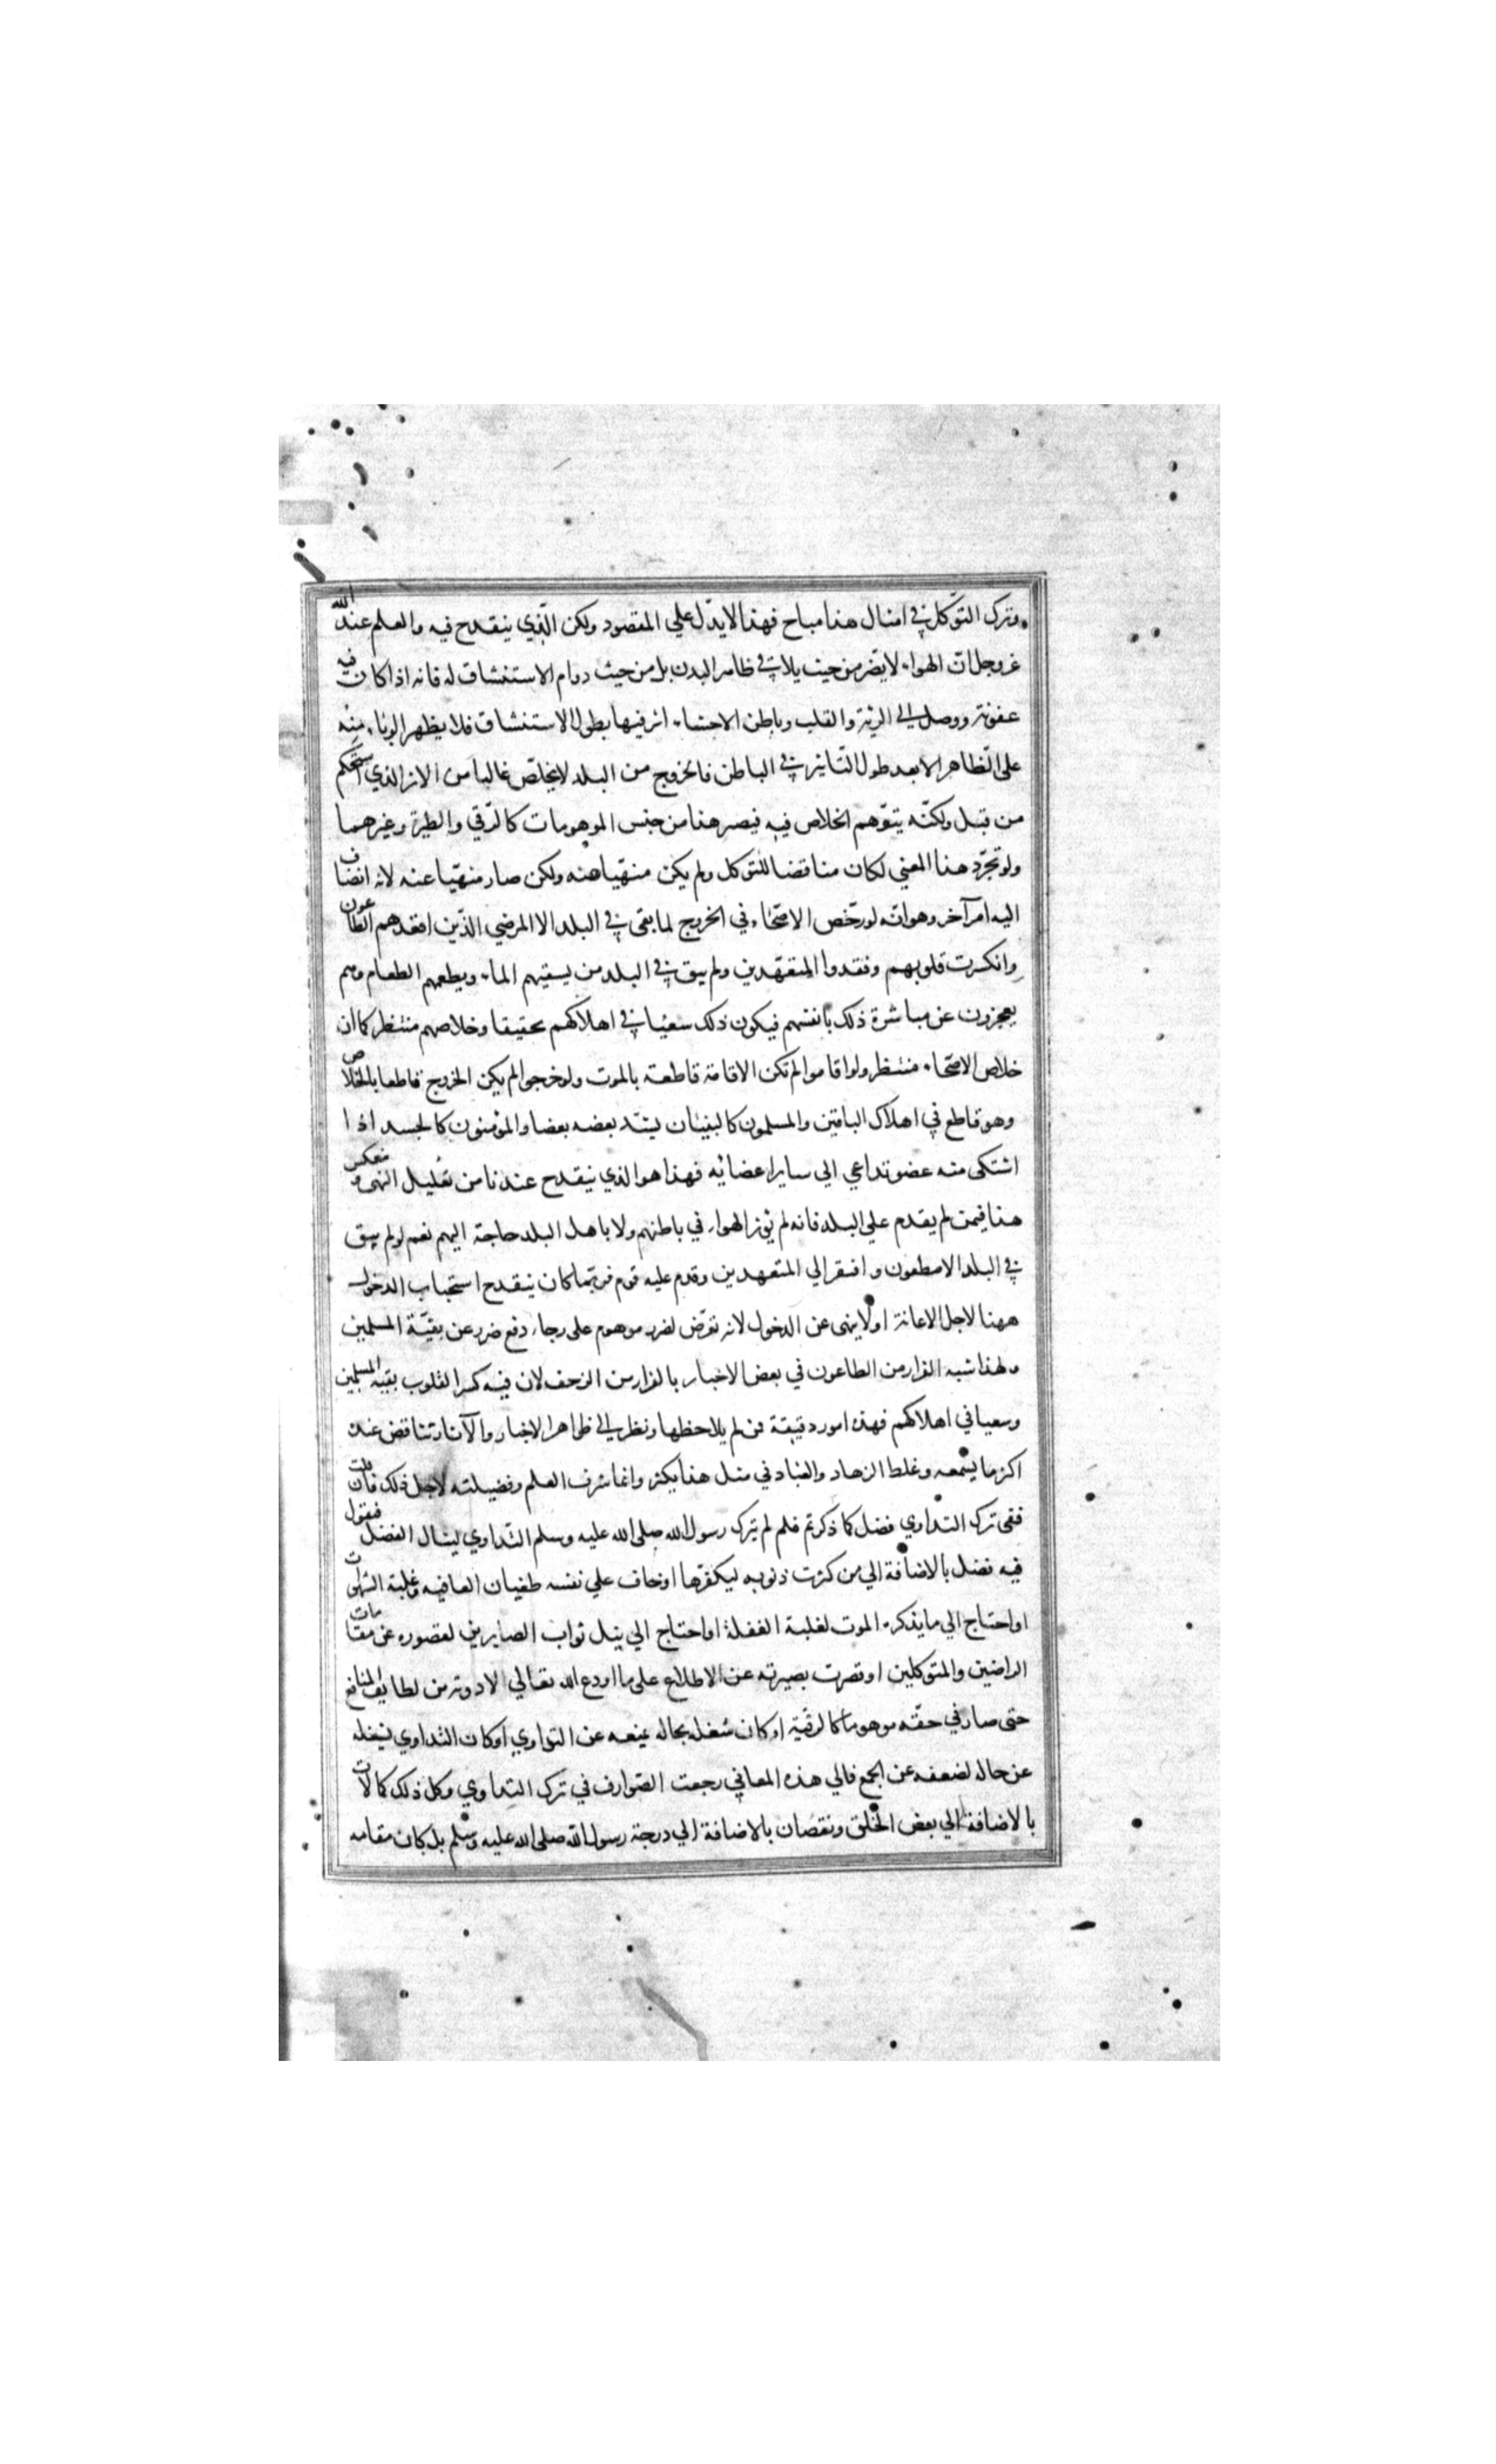 وترك التوكل في امثال هذا مباح فهذا لا يدل علي المقصود ولكن الذي ينقدح فيه والعلم عند الله
عز وجل ان الهواء لا يضر من حيث يلاقي ظاهر البدن بل من حيث دوام الاستنشاق له فانه اذا كان فيه
عفونة ووصل الى الرئة والقلب وباطن الاحشاء اثر فيها بطول الاستنشاق فلا يظهر الوباء منه
على الظاهر الا بعد طول التاثير في الباطن فالخروج من البلد لا يخلص غالبا من الاثر الذي استحكم
من قبل ولكنه يتوهم الخلاص فيه فيصر هذا من جنس الموهومات كالرقي والطيرة وغيرهما
ولو تجرد هذا المعني لكان مناقضا للتوكل ولم يكن منهيا عنه ولكن صار منهيا عنه لانه انضاف
اليه امر آخر وهو انه لو رخص الاصحاء في الخروج لما بقى في البلد الا المرضي الذين اقعدهم الطاعون
وانكسرت قلوبهم وفقدوا المتعهدين ولم يبق في البلد من يسقيهم الماء ويطعمهم الطعام وهم
يعجزون عن مباشرة ذلك بانفسهم فيكون ذلك سعيا في اهلاكهم تحقيقا وخلاصهم منتظر كما ان
خلاص الاصحاء منتظر ولو اقاموا لم تكن الاقامة قاطعة بالموت ولو خرجوا لم يكن الخروج قاطعا بالخلاص
وهو قاطع في اهلاك الباقين والمسلمون كالبنيان يشد بعضه بعضا والمؤمنون كالجسد اذا
اشتكى منه عضو تداعي الي ساير اعضائه فهذا هو الذي ينقدح عندنا من تعليل النهي وينعكس
هذا فيمن لم يقدم علي البلد فانه لم يؤثر الهواء في باطنهم ولا باهل البلد حاجة اليهم نعم لو لم يبق
في البلد الا مطعون وافتقر الي المتعهدين وقدم عليه قوم فربما كان ينقدح استحباب الدخول
ههنا لاجل الاعانة اولا ينهى عن الدخول لانه تعرض لضرر موهوم على رجاء دفع ضرر عن بقية المسلمين
ولهذا شبه الفرار من الطاعون في بعض الاخبار بالفرار من الزحف لان فيه كسرا لقلوب بقية المسلمين
وسعيا في اهلاكهم فهذه امور دقيقة فمن لم يلاحظها ونظر الى ظاهر الاخبار والآثار تناقض عنده
اكثر ما يسمعه وغلط الزهاد والعباد في مثل هذا يكثر وانما شرف العلم وفضيلته لاجل ذلك فان قلت
ففي ترك التداوي فضل كما ذكرتم فلم لم يترك رسول الله صلى الله عليه وسلم التداوي لينال الفضل فنقول
فيه فضل بالاضافة الي من كثرت ذنوبه ليكفرها او خاف علي نفسه طغيان العافيه وغلبة الشهوات
او احتاج الي ما يذكره الموت لغلبة الغفلة او احتاج الي نيل ثواب الصابرين لقصوره عن مقامات
الراضين والمتوكلين او قصرت بصيرته عن الاطلاع على ما اودع الله تعالي الادوية من لطايف المنافع
حتى صار في حقه موهوما كالرقية او كان شغله بحاله يمنعه عن التداوي او كان التداوي يشغله
عن حاله لضعفه عن الجمع فالي هذه المعاني رجعت الصوارف في ترك التداوي وكل ذلك كمالات
بالاضافة الي بعض الخلق ونقصان بالاضافة الي درجة رسول الله صلى الله عليه وسلم بل كان مقامه